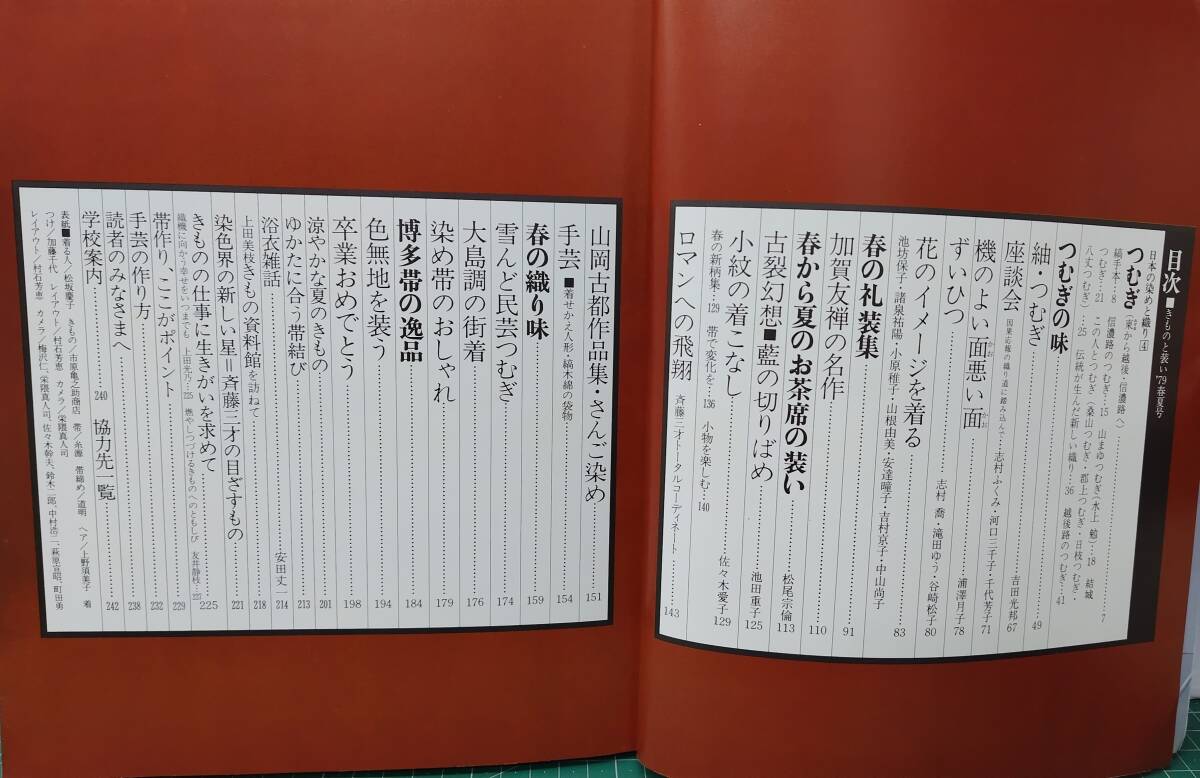 目次■きものと装い'79春夏号
日本の染めと織り4
つむぎ(東から越後・信濃路へ)……7
縞手本…8 信濃路のつむぎ…15 山まゆつむぎ(水上 勉)…18 結城
つむぎ…21 この人とつむぎ(桑山つむぎ・郡上つむぎ・日枝つむぎ・
八丈つむぎ)…25 伝統が生んだ新しい織り…36 越後路のつむぎ…41
つむぎの味……49
紬・つむぎ……吉田光邦 67
座談会 因果応報の織り道に踏み込んで…志村ふくみ・河口三千子・千代芳子 71
機のよい面悪い面……浦澤月子 78
かお かお
ずいひつ……志村 喬・滝田ゆう・谷崎松子 80
花のイメージを着る……83
池坊保子・諸泉祐陽・小原稚子・山根由美・安達瞳子・吉村京子・中山尚子
春の礼装集……91
加賀友禅の名作……110
春から夏のお茶席の装い……松尾宗倫 113
古裂幻想■藍の切りばめ……池田重子 125
小紋の着こなし……佐々木愛子 129
春の新柄集…129 帯で変化を…136 小物を楽しむ…140
ロマンへの飛翔 斉藤三才トータルコーディネート……143
山岡古都作品集・さんご染め……151
手芸■着せかえ人形・縞木綿の袋物……154
春の織り味……159
雪んど民芸つむぎ……174
大島調の街着……176
染め帯のおしゃれ……179
博多帯の逸品……184
色無地を装う……194
卒業おめでとう……198
涼やかな夏のきもの……201
ゆかたに合う帯結び……213
浴衣雑話……安田丈一 214
上田美枝きもの資料館を訪ねて……218
染色界の新しい星=斉藤三才の目ざすもの……221
きものの仕事に生きがいを求めて……225
織機に向かう幸せをいつまでも 上田光乃…225 燃やしつづけるきものへのともしび 友井静枝…227
帯作り、ここがポイント……229
手芸の作り方……232
読者のみなさまへ……238
学校案内……240 協力先一覧……242
表紙■着る人/松坂慶子 きもの/市原亀之助商店 帯/糸源 帯締め/道明 ヘア/上野須美子 着
つけ/加藤千代 レイアウト/村石芳恵 カメラ/栄隈真人司
レイアウト/村石芳恵 カメラ/梅沢仁、栄隈真人司、佐々木幹夫、鈴木一郎、中村浩二、萩原宣昭、町田勇